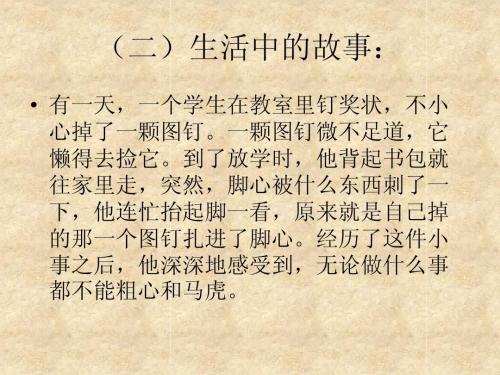 （二）生活中的故事：
• 有一天，一个学生在教室里钉奖状，不小
心掉了一颗图钉。一颗图钉微不足道，它
懒得去捡它。到了放学时，他背起书包就
往家里走，突然，脚心被什么东西刺了一
下，他连忙抬起脚一看，原来就是自己掉
的那一个图钉扎进了脚心。经历了这件小
事之后，他深深地感受到，无论做什么事
都不能粗心和马虎。